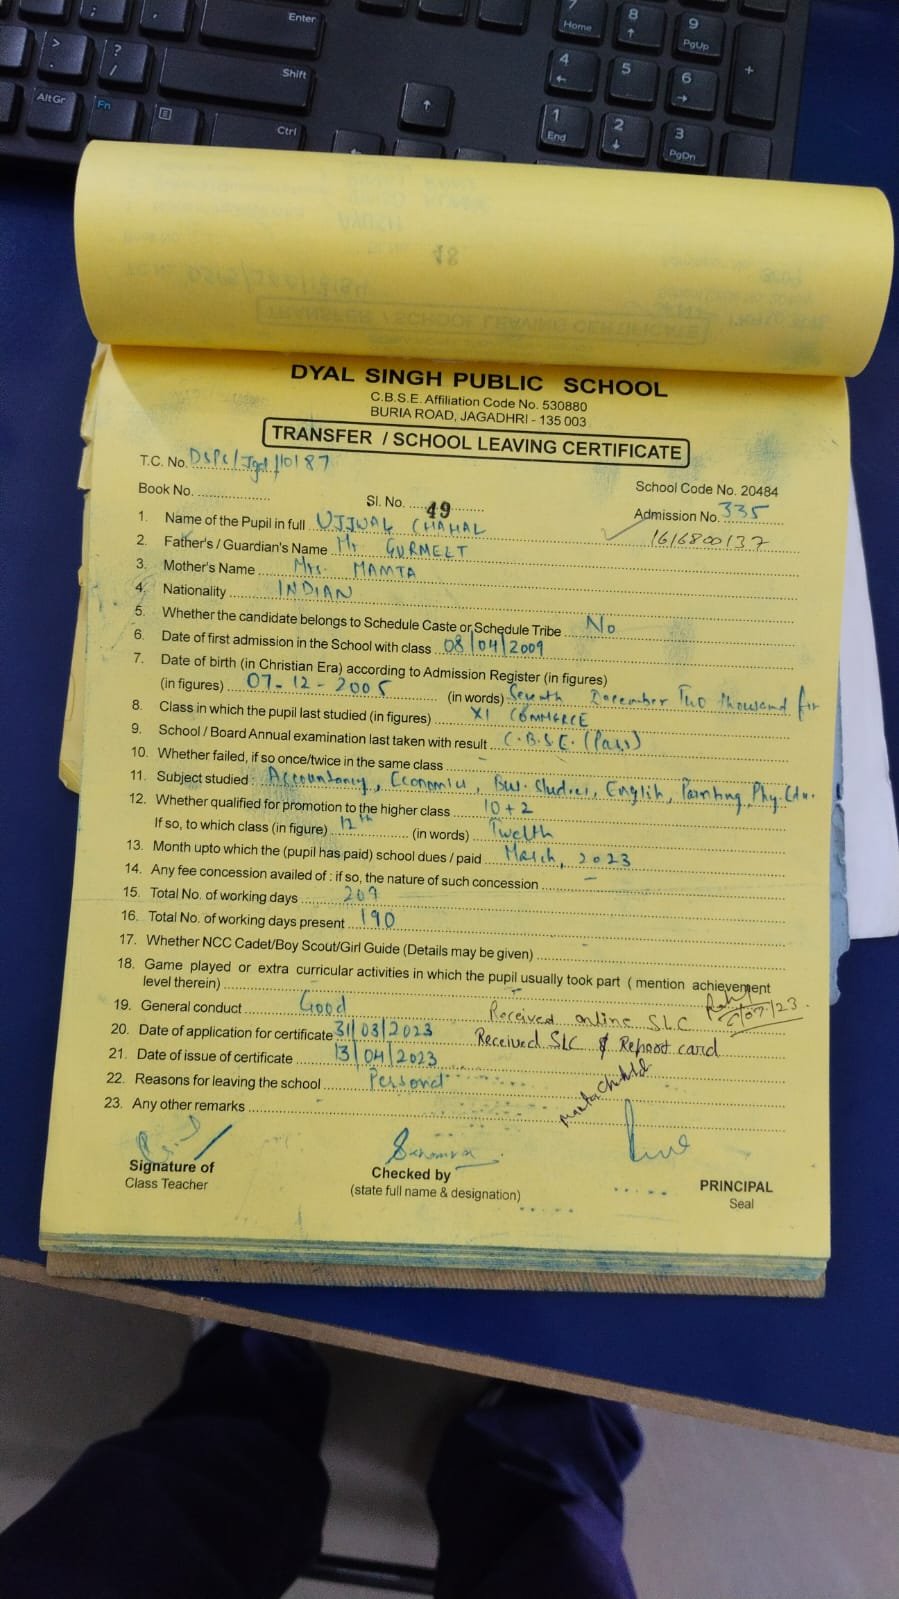 Enter
Shift
Ctrl
AltGr
Fn
7
Home
8
9
PgUp
4
5
6
+
1
End
2
3
PgDn
48
DYAL SINGH PUBLIC SCHOOL
C.B.S.E. Affiliation Code No. 530880
BURIA ROAD, JAGADHRI - 135 003
TRANSFER / SCHOOL LEAVING CERTIFICATE
T.C. No. DSPS/Jgd/10187
School Code No. 20484
Book No.
Sl. No. 49
Admission No. 335
1616800137
1. Name of the Pupil in full UJJWAL CHAHAL
2. Father's / Guardian's Name Mr GURMEET
3. Mother's Name Mrs. MAMTA
4. Nationality INDIAN
5. Whether the candidate belongs to Schedule Caste or Schedule Tribe No
6. Date of first admission in the School with class 08/04/2009
7. Date of birth (in Christian Era) according to Admission Register (in figures)
(in figures) 07-12-2005 (in words) Seventh December Two thousand five
8. Class in which the pupil last studied (in figures) XI COMMERCE
9. School / Board Annual examination last taken with result C.B.S.E. (Pass)
10. Whether failed, if so once/twice in the same class -
11. Subject studied : Accountancy, Economics, Bus. Studies, English, Painting, Phy. Edu.
12. Whether qualified for promotion to the higher class 10+2
If so, to which class (in figure) 12th (in words) Twelth
13. Month upto which the (pupil has paid) school dues / paid March, 2023
14. Any fee concession availed of : if so, the nature of such concession -
15. Total No. of working days 209
16. Total No. of working days present 190
17. Whether NCC Cadet/Boy Scout/Girl Guide (Details may be given) -
18. Game played or extra curricular activities in which the pupil usually took part ( mention achievement
level therein) -
19. General conduct Good Received online SLC
20. Date of application for certificate 31/03/2023 Received SLC & Report card
21. Date of issue of certificate 13/04/2023
22. Reasons for leaving the school Personal
23. Any other remarks -
Signature of
Class Teacher
Checked by
(state full name & designation)
PRINCIPAL
Seal